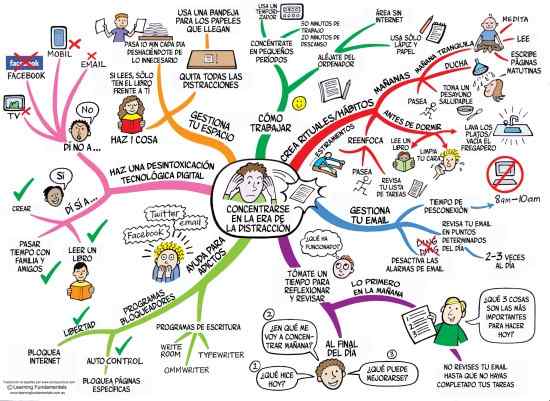 CONCENTRARSE
EN LA ERA DE
LA DISTRACCIÓN
CÓMO
TRABAJAR
USA UN
TEMPORI-
ZADOR
50 MINUTOS DE
TRABAJO
20 MINUTOS DE
DESCANSO
CONCÉNTRATE
EN PEQUEÑOS
PERÍODOS
ÁREA SIN
INTERNET
USA SÓLO
LÁPIZ Y
PAPEL
ALÉJATE DEL
ORDENADOR
CREA RITUALES/HÁBITOS
MAÑANAS
MAÑANA TRANQUILA
MEDITA
LEE
ESCRIBE
PÁGINAS
MATUTINAS
DUCHA
TOMA UN
DESAYUNO
SALUDABLE
PASEA
ANTES DE DORMIR
LAVA LOS
PLATOS/
VACÍA EL
FREGADERO
LIMPIA
TU CARA
LEE UN
LIBRO
REENFOCA
ESTIRAMIENTOS
PASEA
REVISA TU
LISTA DE
TAREAS
GESTIONA
TU EMAIL
TIEMPO DE
DESCONEXIÓN
8am-10am
REVISA TU EMAIL
EN PUNTOS
DETERMINADOS
DEL DÍA
2-3 VECES
AL DÍA
DING
DING
DESACTIVA LAS
ALARMAS DE EMAIL
TÓMATE UN
TIEMPO PARA
REFLEXIONAR
Y REVISAR
¿QUÉ HA
FUNCIONADO?
LO PRIMERO
EN LA MAÑANA
¿QUÉ 3 COSAS
SON LAS MÁS
IMPORTANTES
PARA HACER
HOY?
NO REVISES TU EMAIL
HASTA QUE NO HAYAS
COMPLETADO TUS TAREAS
AL FINAL
DEL DÍA
1
¿QUÉ HICE
HOY?
2
¿EN QUÉ ME
VOY A CONCEN-
TRAR MAÑANA?
3
¿QUÉ PUEDE
MEJORARSE?
AYUDA PARA
ADICTOS
Twitter
email
Facebook
PROGRAMAS DE ESCRITURA
WRITE
ROOM
OMMWRITER
TYPEWRITER
PROGRAMAS
BLOQUEADORES
LIBERTAD
BLOQUEA
INTERNET
AUTO CONTROL
BLOQUEA PÁGINAS
ESPECÍFICAS
HAZ UNA DESINTOXICACIÓN
TECNOLÓGICA DIGITAL
DÍ NO A...
No
TV
facebook
FACEBOOK
MOBIL
EMAIL
DÍ SÍ A...
SÍ
CREAR
PASAR
TIEMPO CON
FAMILIA Y
AMIGOS
LEER UN
LIBRO
GESTIONA
TU ESPACIO
HAZ 1 COSA
SI LEES, SÓLO
TEN EL LIBRO
FRENTE A TÍ
QUITA TODAS LAS
DISTRACCIONES
PASA 10 MIN CADA DIA
DESHACIÉNDOTE DE
LO INNECESARIO
USA UNA BANDEJA
PARA LOS PAPELES
QUE LLEGAN
© Learning Fundamentals
www.learningfundamentals.com.au